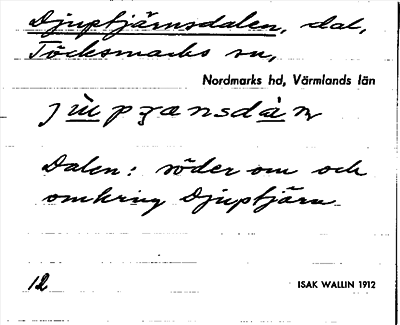 Djuptjärnsdalen, dal,
Töcksmarks sn,
Nordmarks hd, Värmlands län
Dalen: söder om och
omkring Djuptjärn
12
ISAK WALLIN 1912